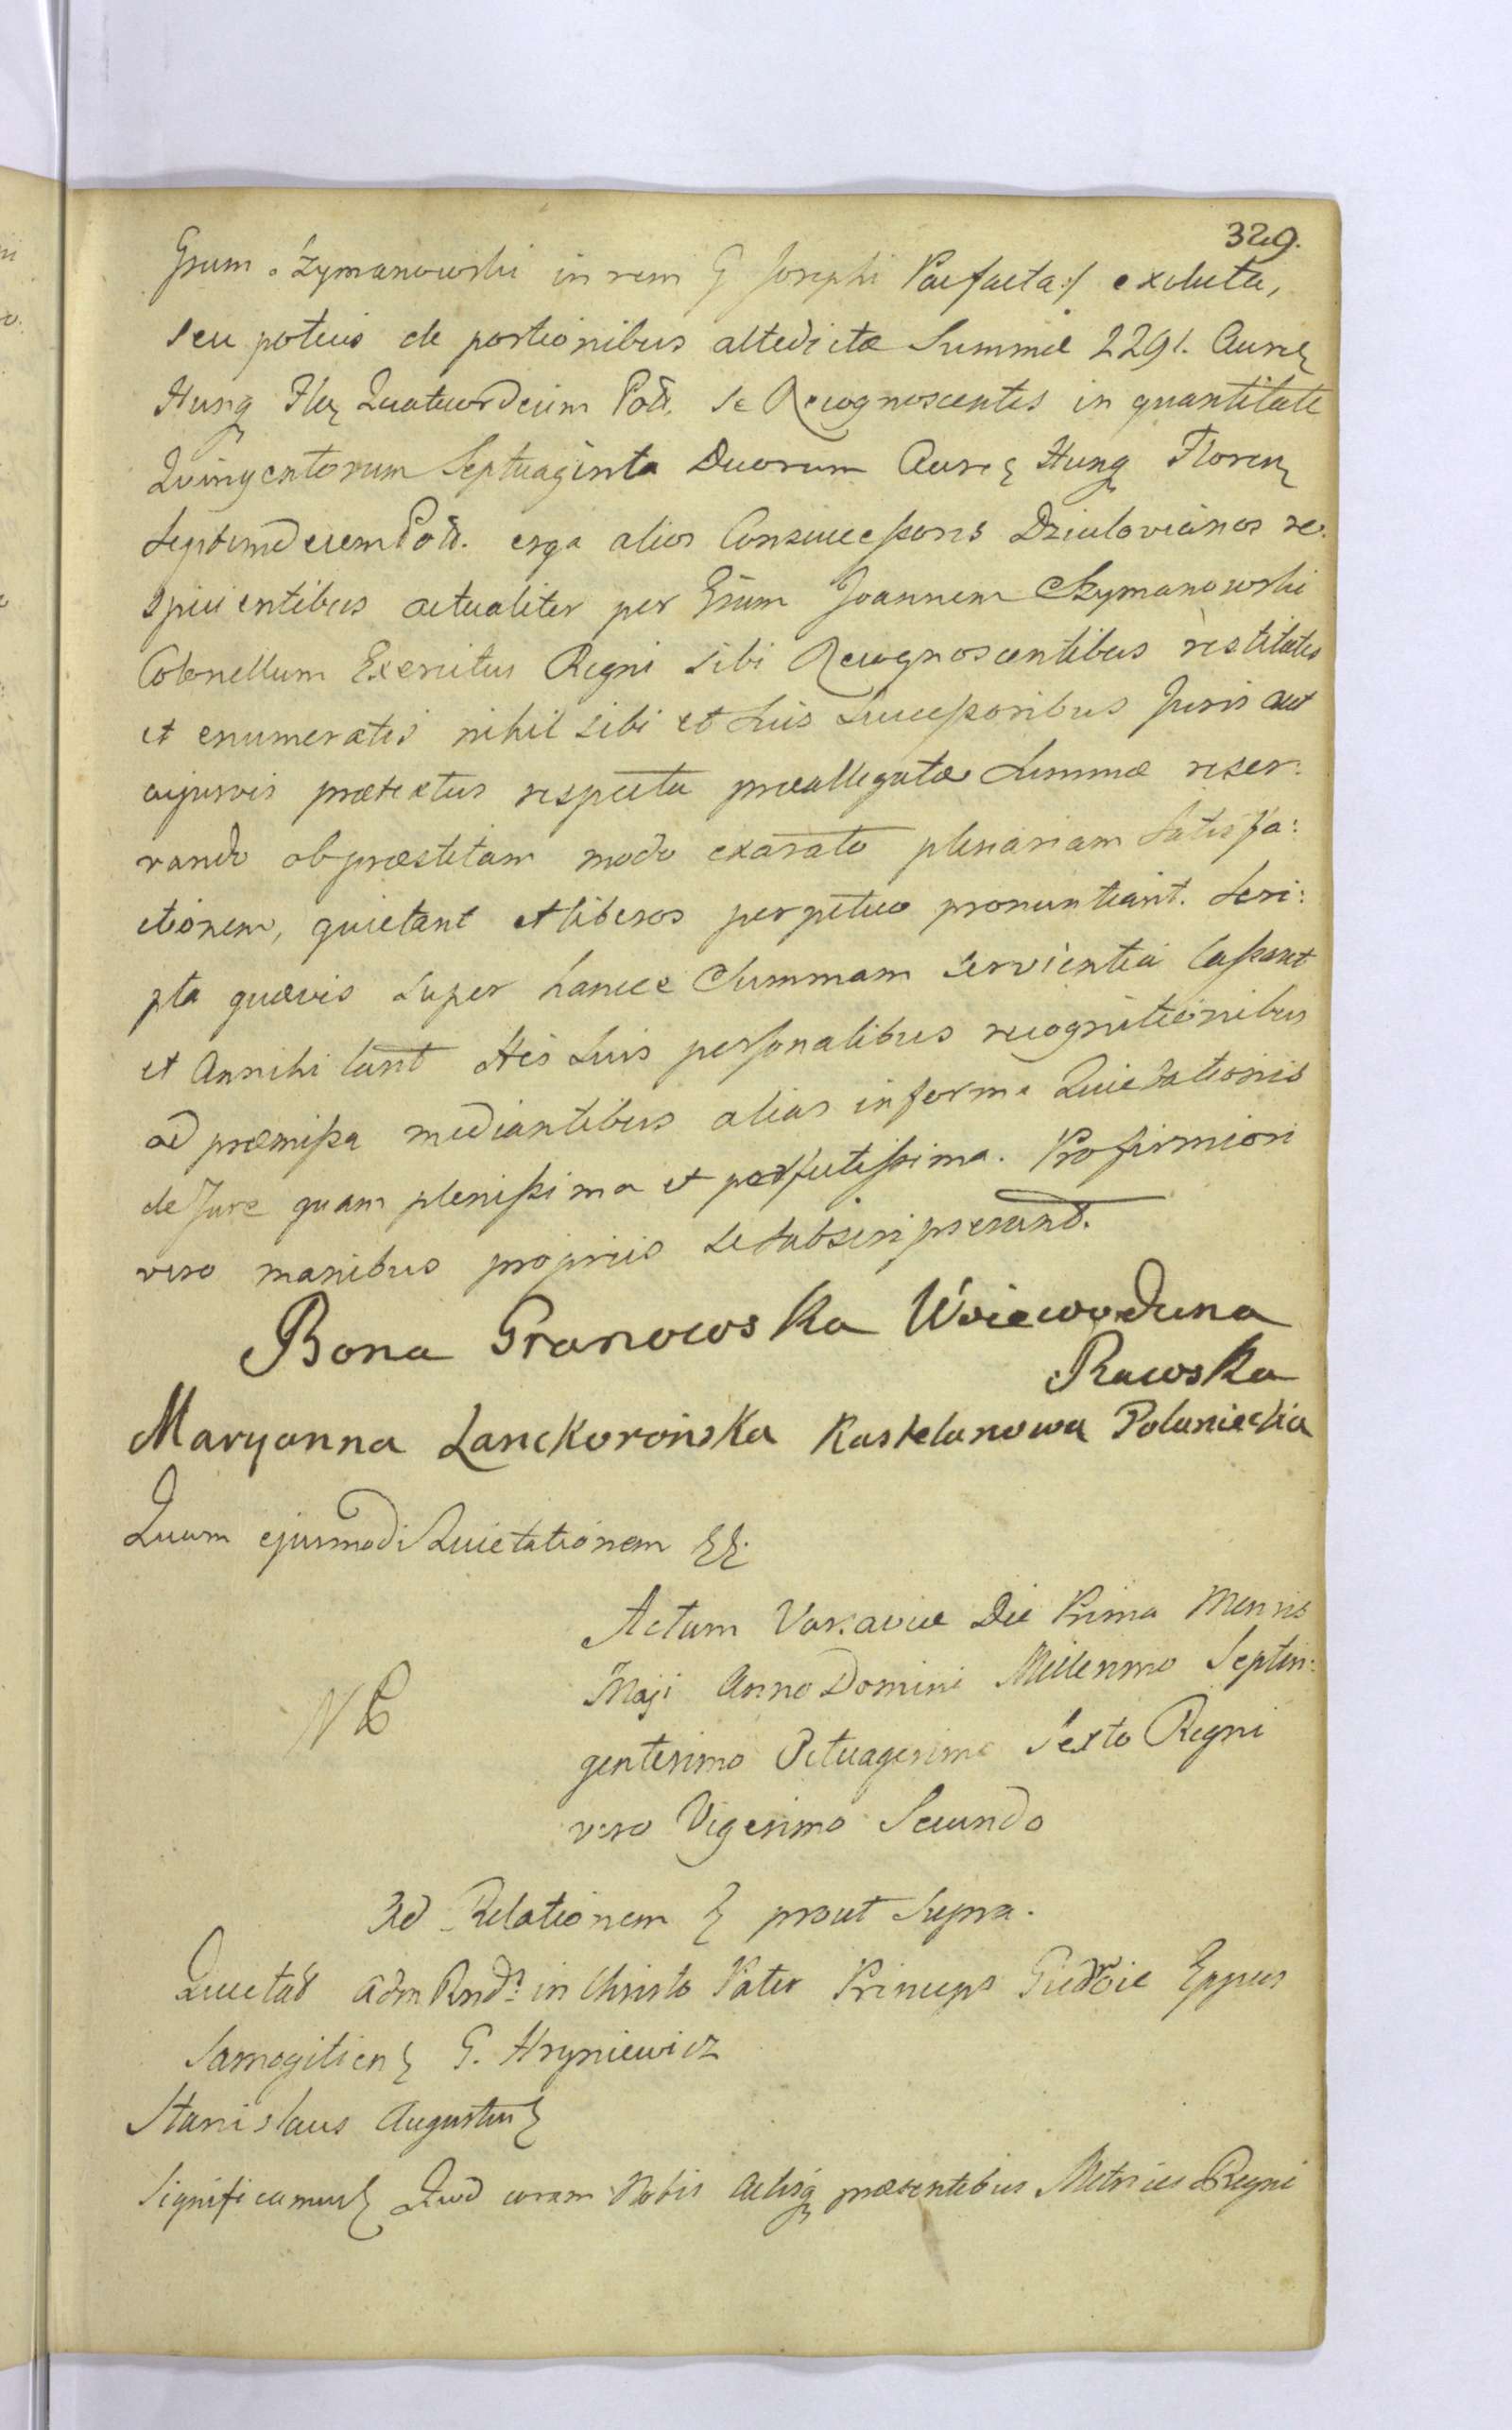 329.
Gsum Szymanowski in rem G Josephi Paefacta :/ exoluta,
seu potius de portionibus altedictæ Summæ 2291. Aureȝ
Hung Fleȝ Quatuordecim Poll. se Recognoscentes in quantitate
Quingentorum Septuaginta Duorum Aureȝ Hung Florenȝ
Septemdecem Poll. erga alios Consuccessores Dziuloviános re:
spicientibus actualiter per Gsum Joannem Szymanowski
Colonellum Exercitus Regni sibi Recognoscentibus restitutis
et enumeratis nihil sibi et suis Successoribus Juris aut
cujusvis prætextus respectu præallegatæ Summæ reser:
vando ob præstitam modo exarato plenariam Satisfa:
ctionem, quietant et liberos perpetuo pronuntiant. Scri:
pta quævis super hancce Summam servientia Cassant
et Annihilant His suis personalibus recognitionibus
ad præmissa mediantibus alias in forma Quietationis
de Jure quam plenissima et perfectissima. Pro firmiori
vero manibus propriis se subscripserunt.
Bona Granowska Woiewodzina
Rawska
Maryanna Lanckorońska Kasztelanowa Połaniecka
Quum ejusmodi Quietationem ȝȝ:
Actum Varsaviæ Die Prima Mensis
Maji Anno Domini Millesimo Septin:
gentesimo Octuagesimo Sexto Regni
vero Vigesimo Secundo
Ad Relationem ȝ prout supra.
Quietat Adm Rnd⁹ in Christo Pater Princeps Giedroic Eppus
Samogitienȝ G. Hryniewicz
Stanislaus Augustusȝ
Significamusȝ Quod coram Nobis Actisqȝ præsentibus Metrices Regni